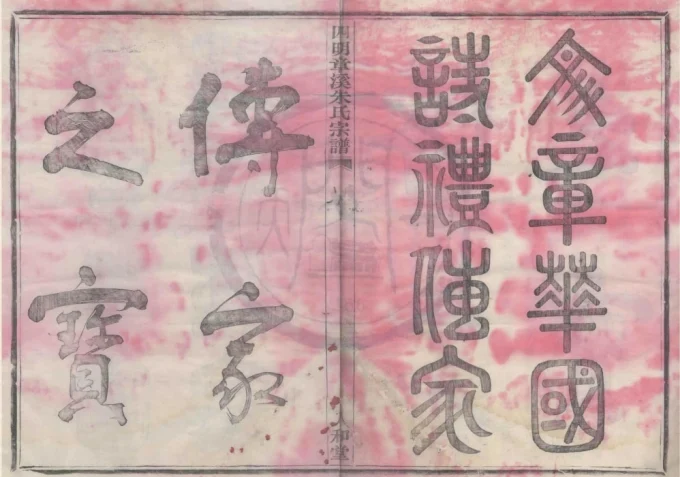 文章華國
詩禮傳家
四明章溪朱氏宗譜
卷
人和堂
傳家
之寶